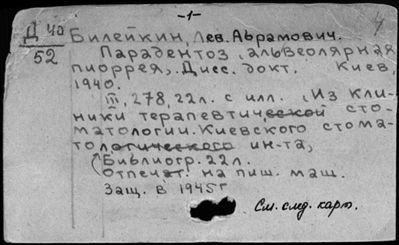 -1-
Д 40
52
Билейкин, Лев. Абрамович.
Парадентоз, альвеолярная
пиоррея, Дисс. докт. Киев,
1940.
III, 278, 22л. с илл. (Из кли-
ники терапевтической сто-
матологии. Киевского стома-
тологического ин-та,
(Библиогр. 22л.
Отпечат. на пиш. маш.
Защ. в 1945г
См. след. карт.